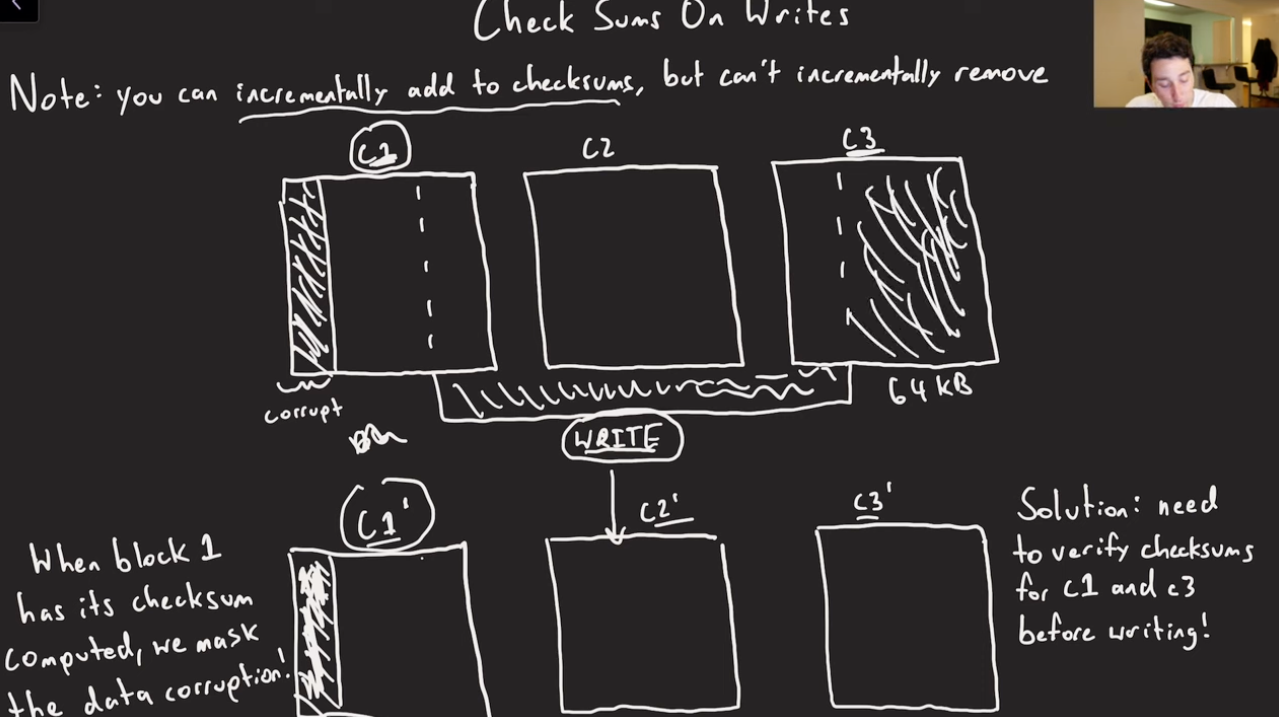 Check Sums On Writes
Note: you can incrementally add to checksums, but can't incrementally remove
C1
C2
C3
corrupt
64 KB
WRITE
C1'
C2'
C3'
When block 1
has its checksum
computed, we mask
the data corruption!
Solution: need
to verify checksums
for C1 and c3
before writing!